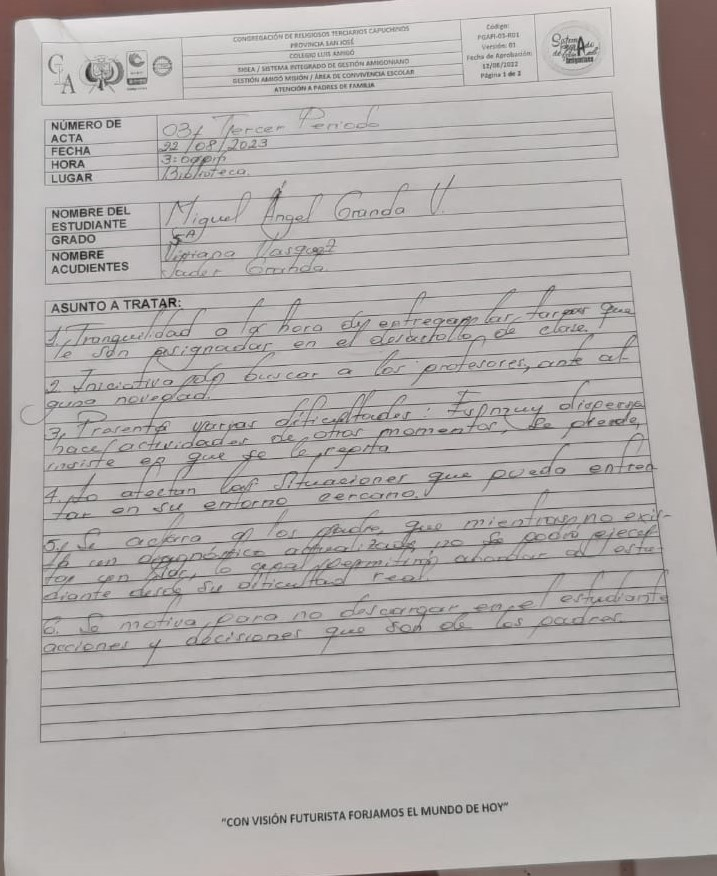 CONGREGACIÓN DE RELIGIOSOS TERCIARIOS CAPUCHINOS
PROVINCIA SAN JOSÉ
COLEGIO LUIS AMIGÓ
SIGEA / SISTEMA INTEGRADO DE GESTIÓN AMIGONIANO
GESTIÓN AMIGÓ MISIÓN / ÁREA DE CONVIVENCIA ESCOLAR
ATENCIÓN A PADRES DE FAMILIA
Código:
PGAPI-03-R01
Versión: 01
Fecha de Aprobación:
12/08/2022
Página 1 de 2
CLA
NÚMERO DE ACTA 03, Tercer Periodo
FECHA 22/08/2023
HORA 3:00pm
LUGAR Biblioteca.
NOMBRE DEL ESTUDIANTE Miguel Ángel Granda V.
GRADO 5ª
NOMBRE ACUDIENTES Viviana Vasquez
Jader Granda.
ASUNTO A TRATAR:
1. Tranquilidad a la hora de entregar las tareas que
le son asignadas en el desarrollo de clase.
2. Iniciativa para buscar a los profesores, ante al
guna novedad.
3. Presenta varias dificultades: Es muy dispersa
hace actividades de otros momentos, se pierde,
insiste en que se le repita
4. Lo afectan las situaciones que pueda enfren
tar en su entorno cercano.
5. Se aclara a los padre, que mientras no exis-
ta un diagnóstico actualizado, no se podrá ejecu
tar un piar, lo cual permitirá abordar al estu
diante desde su dificultad real
6. Se motiva para no descargar en el estudiante
acciones y decisiones que son de los padres.
"CON VISIÓN FUTURISTA FORJAMOS EL MUNDO DE HOY"